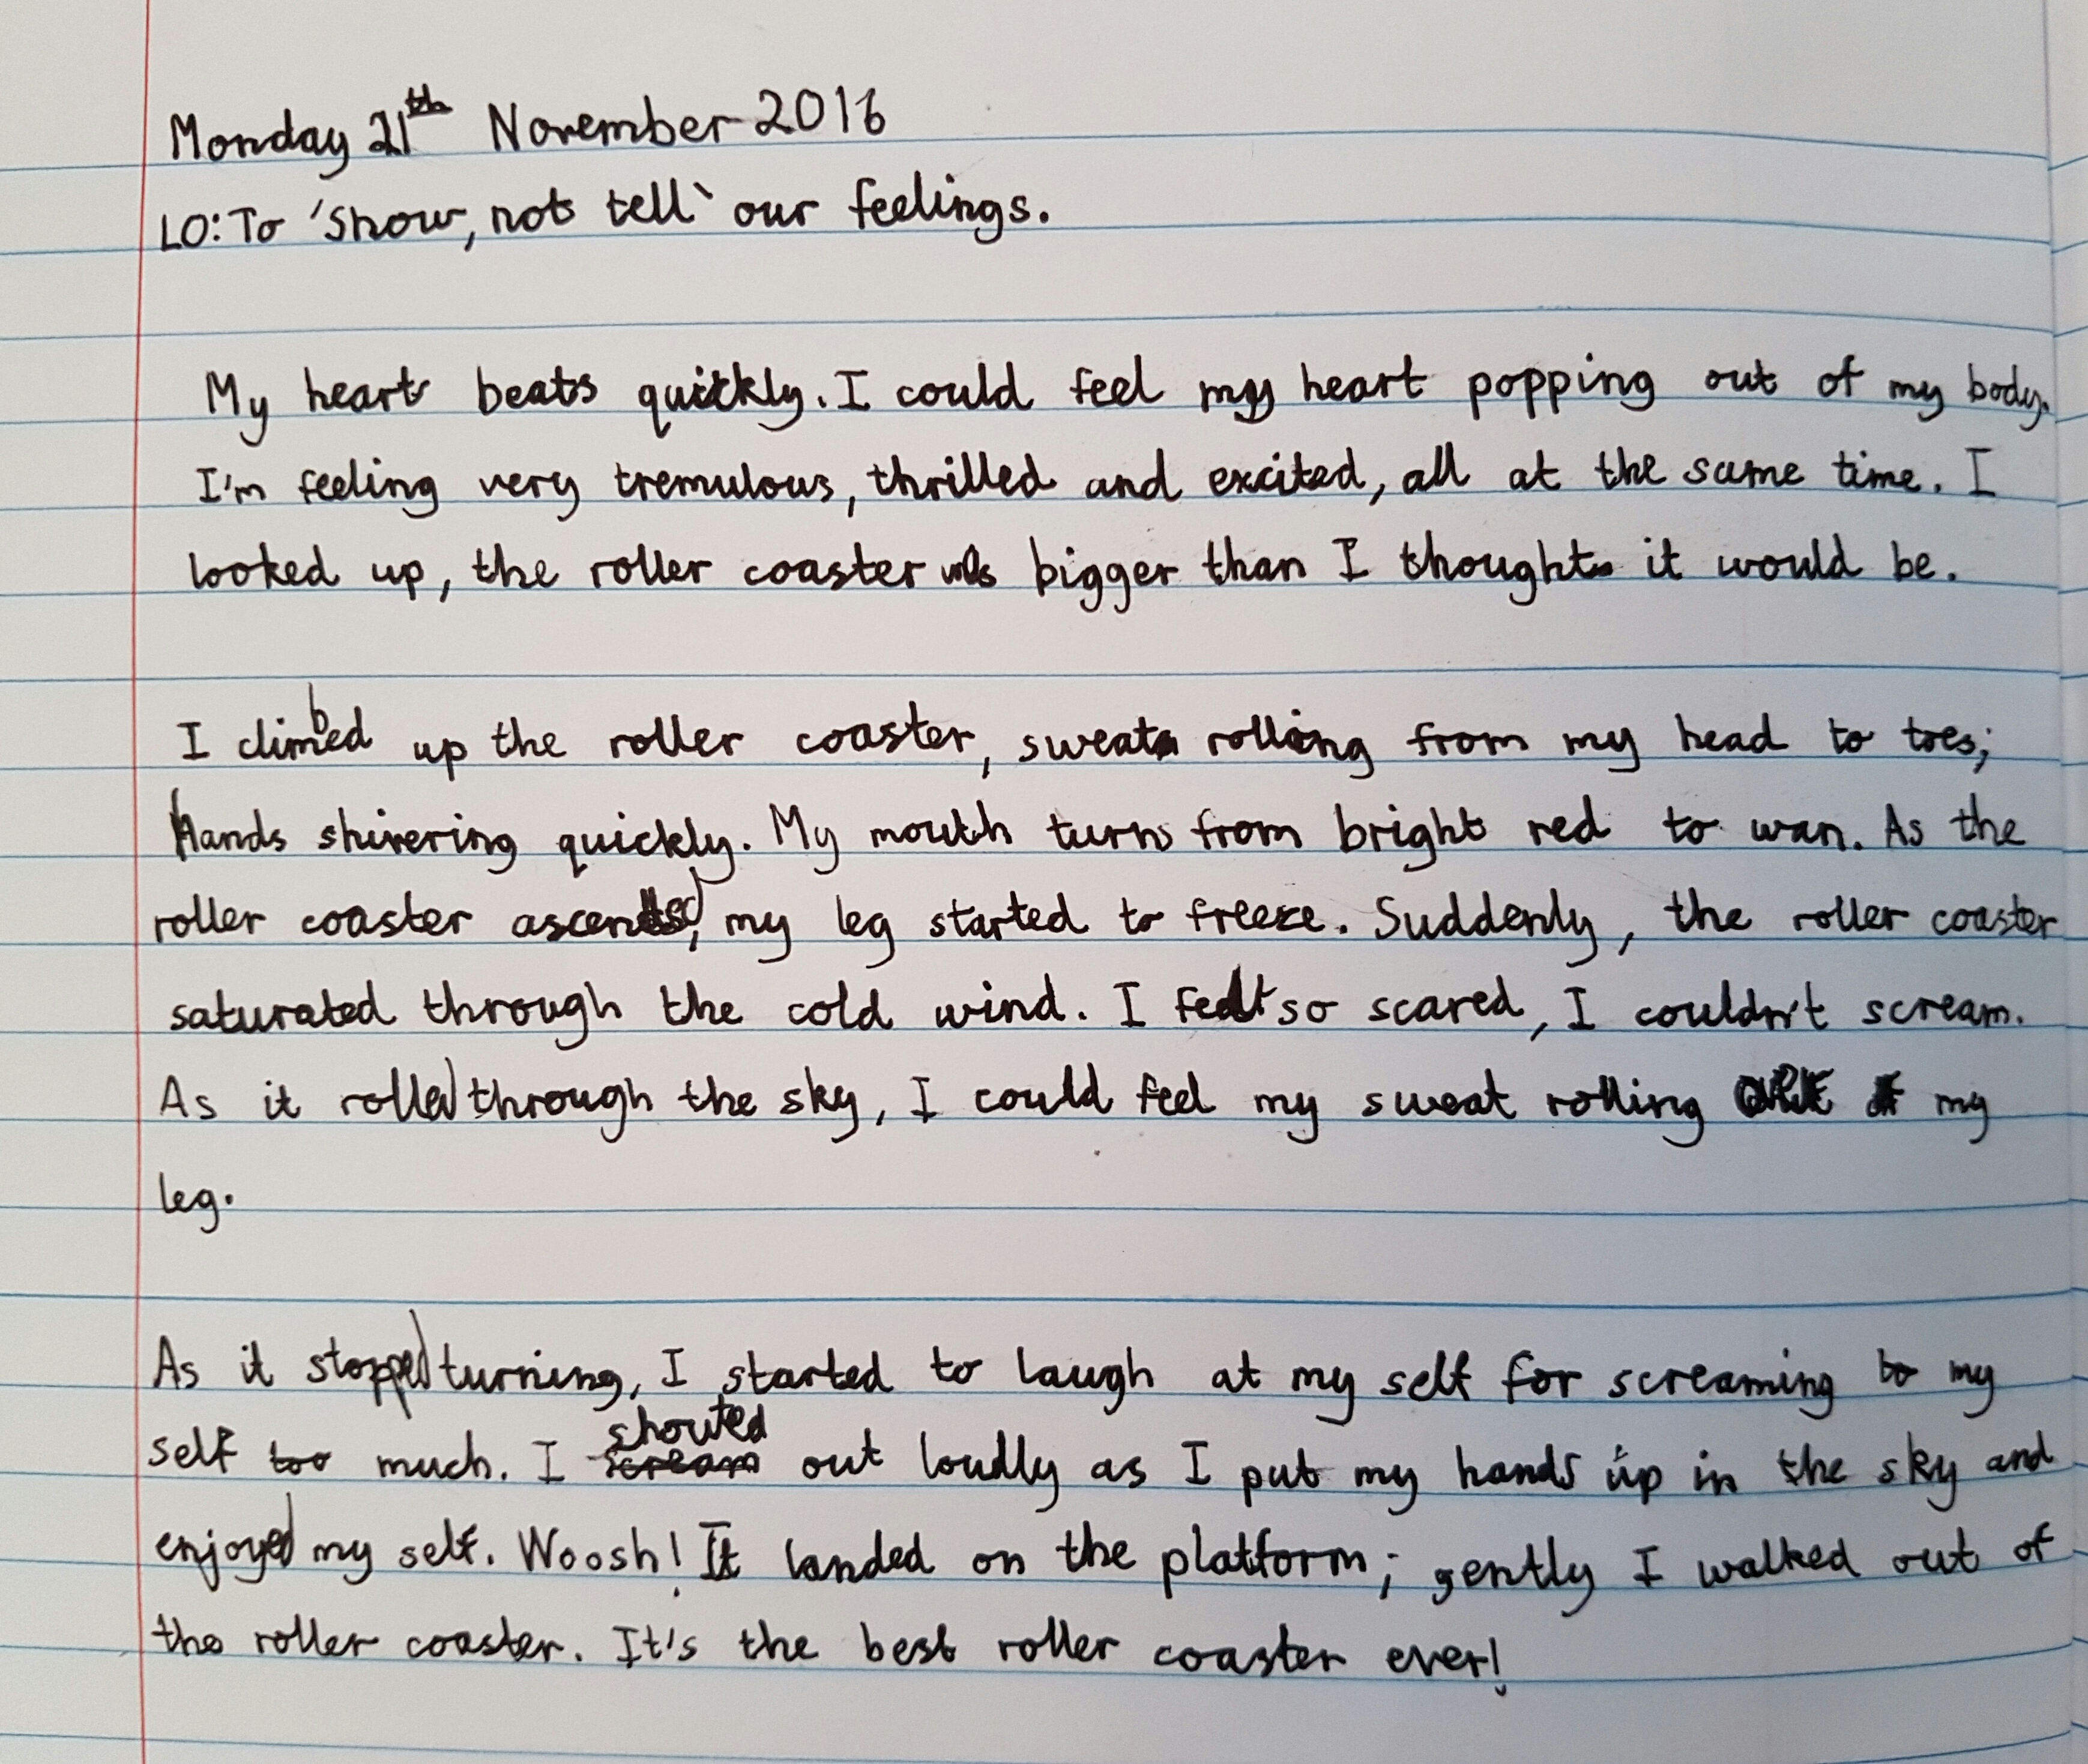 Monday 21th November 2016
LO: To 'Show, not tell' our feelings.
My heart beats quickly. I could feel my heart popping out of my body.
I'm feeling very tremulous, thrilled and excited, all at the same time. I
looked up, the roller coaster was bigger than I thought it would be.
I climbed up the roller coaster, sweat rolling from my head to toes;
Hands shivering quickly. My mouth turns from bright red to wan. As the
roller coaster ascended, my leg started to freeze. Suddenly, the roller coaster
saturated through the cold wind. I felt so scared, I couldn't scream.
As it rolled through the sky, I could feel my sweat rolling my
leg.
As it stopped turning, I started to laugh at my self for screaming to my
self too much. I shouted out loudly as I put my hands up in the sky and
enjoyed my self. Woosh! It landed on the platform; gently I walked out of
the roller coaster. It's the best roller coaster ever!